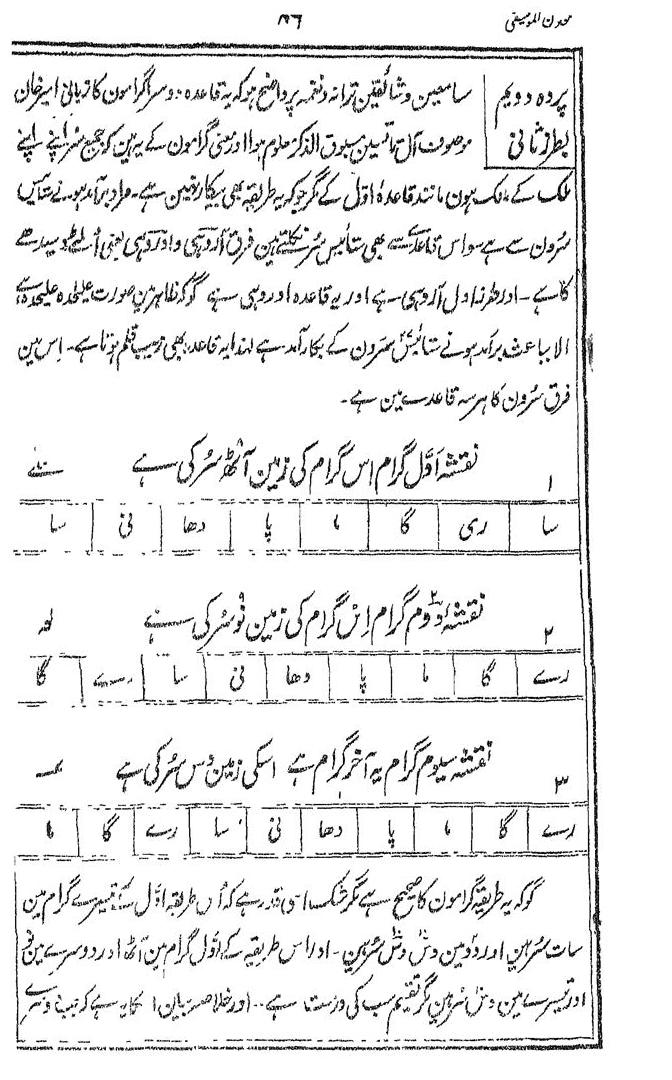 معدن الموسیقی
۱۷۶
پردہ دویم
بطرز ثانی
سامعین و شائقین ترانہ و نغمہ پر واضح ہو کہ یہ قاعدہ دوسرا گرامون کا زبانی امیر خان
موصوف مسبوق الذکر معلوم ہوا اور معنی گرامون کے یہ ہین کہ جمیع سُر اپنے اپنے
ملک کے مالک ہون مانند قاعدہ اوّل کے مگر جو کہ یہ طریقہ بھی بیکار نہین ہے۔ مراد برآمد ہونے ستائیس
سُرون سے ہے سو اس قاعدے سے بھی ستائیس سُر نکلتے ہین فرق آروہی و اوروہی یعنی اُلٹے و سیدھے
کا ہے۔ اور طرز اول آروہی ہے اور یہ قاعدہ اوروہی ہے گو کہ ظاہر مین صورت علیحدہ علیحدہ ہے
الا باعث برآمد ہونے ستائیس سُرون کے بکار آمد ہے لہذا یہ قاعدہ بھی زیب قلم ہوتا ہے۔ اِس مین
فرق سُرون کا ہر سہ قاعدے مین ہے۔
۱ نقشہ اَوّل گرام اس گرام کی زمین آٹھ سُر کی ہے
سا ری گا ما پا دھا نی سا
۲ نقشہ دوم گرام اِس گرام کی زمین نو سُر کی ہے
رے گا ما پا دھا نی سا رے گا
۳ نقشہ سیوم گرام یہ آخر گرام ہے اسکی زمین دس سُر کی ہے
رے گا ما پا دھا نی سا رے گا ما
گو کہ یہ طریقہ گرامون کا صحیح ہے مگر شک اسی قدر ہے کہ اُس طریقہ اوّل کے تیسرے گرام مین
سات سُر ہین اور دو مین دس دس سُر ہین۔ اور اس طریقہ کے اوّل گرام مین آٹھ اور دوسرے مین نو
اور تیسرے مین دس سُر ہین مگر تقسیم سب کی درست ہے۔ اور خلاصہ بیان اسکا یہ ہے کہ جب